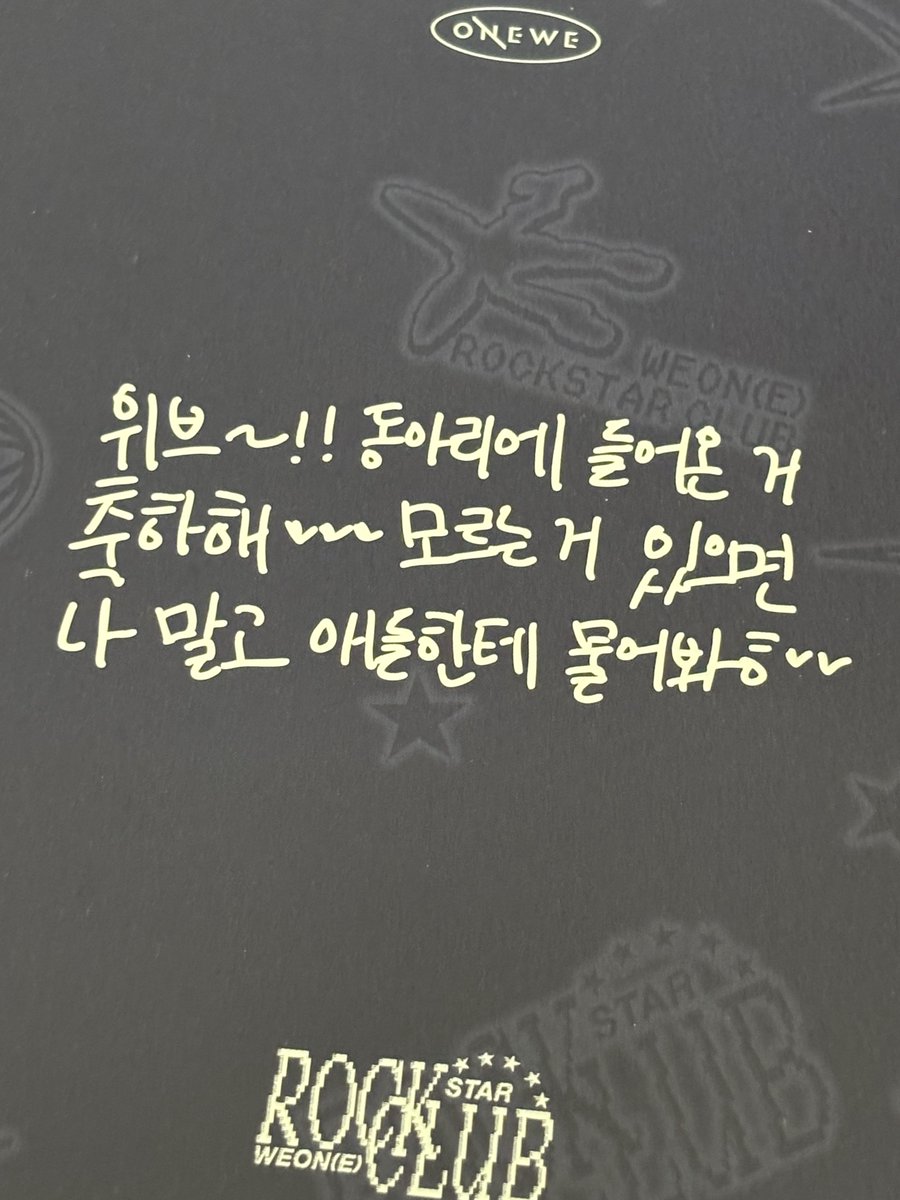 ONEWE
WEON(E)
ROCKSTAR CLUB
위브~!! 동아리에 들어온 거
축하해~~ 모르는 거 있으면
나 말고 애들한테 물어봐ㅎ~~
STAR
CLUB
ROCK STAR
CLUB
WEON(E)